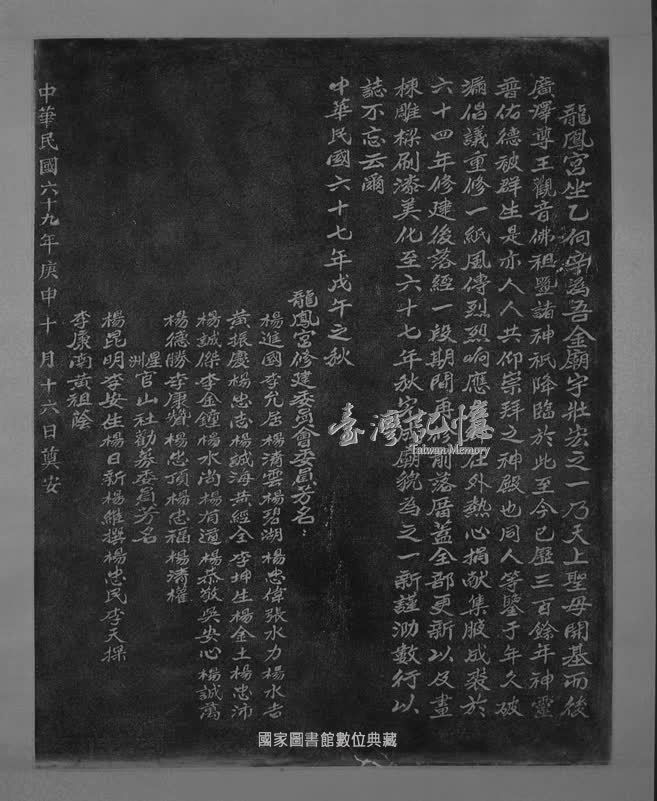 龍鳳宮坐乙向辛為吾金廟宇壯宏之一乃天上聖母開基而後
廣澤尊王觀音佛祖暨諸神祇降臨於此至今已歷三百餘年神靈
普佑德被群生是亦人人共仰宗拜之神殿也同人等鑒于年久破
漏倡議重修一紙風傳烈烈响應 在外熱心捐献集腋成裘於
六十四年修建後落經一段期間再修前落厝蓋全部更新以及畫
棟雕樑刷漆美化至六十七年秋 廟貌為之一新謹泐數行以
誌不忘云爾
中華民國六十七年戊午之秋
龍鳳宮修建委員會委員芳名：
楊進國李允居楊清雲楊碧湖楊忠偉張水力楊水吉
黃振慶楊忠志楊誠海黃經全李坤生楊金土楊忠沛
楊誠傑李金鐘楊水尚楊有道楊恭敬吳安心楊誠萬
楊德勝李康贊楊忠頂楊忠福楊清權
星洲官山社勸募委員芳名
楊昆明李安生楊日新楊維撰楊忠民李天探
李康南黃祖蔭
中華民國六十九年庚申十月十六日奠安
臺灣記憶
Taiwan Memory
國家圖書館數位典藏